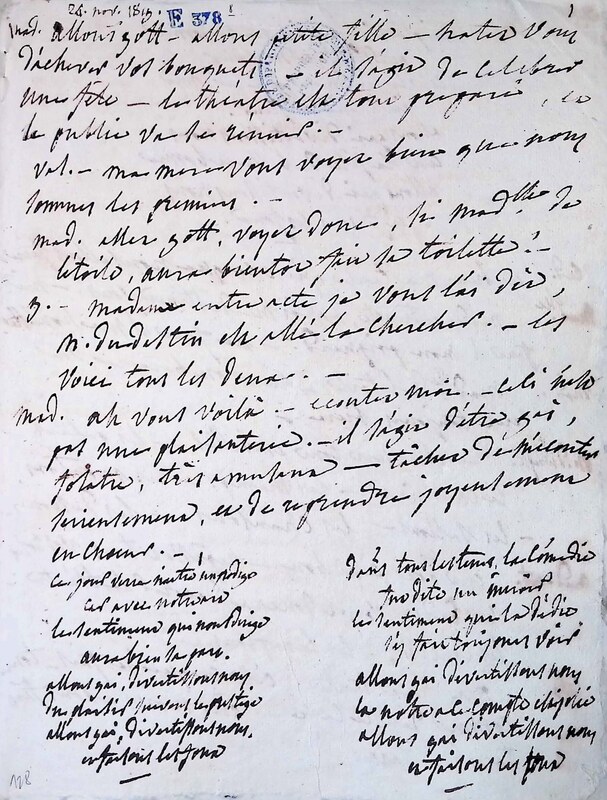 24. nov. 1819. E 378 1
mad. allons gott – allons petite fille – hatez vous
d'achever vos bouquets – il s'agit de celebrer
une fête – le théatre est tout preparé, et
le public va se réunir. –
val. – ma mere vous voyez bien que nous
sommes les premiers. –
mad. allez gott, voyez donc, si mad.lle de
l'étoile, aura bientot fini sa toilette! –
g. – madame entre acte je vous l'ai dit,
m. du destin est allé la chercher. – les
voici tous les deux. –
mad. ah vous voilà – ecoutez moi – ceci n'est
pas une plaisanterie. – il s'agit d'être gai,
folatre, très amusant – tâchez de
serieusement, et de reprendre joyeusement
en choeur. –
ce jour verra un prodige
car avec notre
le sentiment qui nous dirige
aura bien sa part.
allons gai, divertissons nous
du plaisir suivons le prestige
allons gai, divertissons nous.
en faisons les foux
Dans tous les tems, la Comédie
fut dite un miroir
le sentiment qui la dédie
s'y fait toujours voir
allons gai divertissons nous
la notre a le compte est jolie
allons gai divertissons nous
en faisons les foux
128